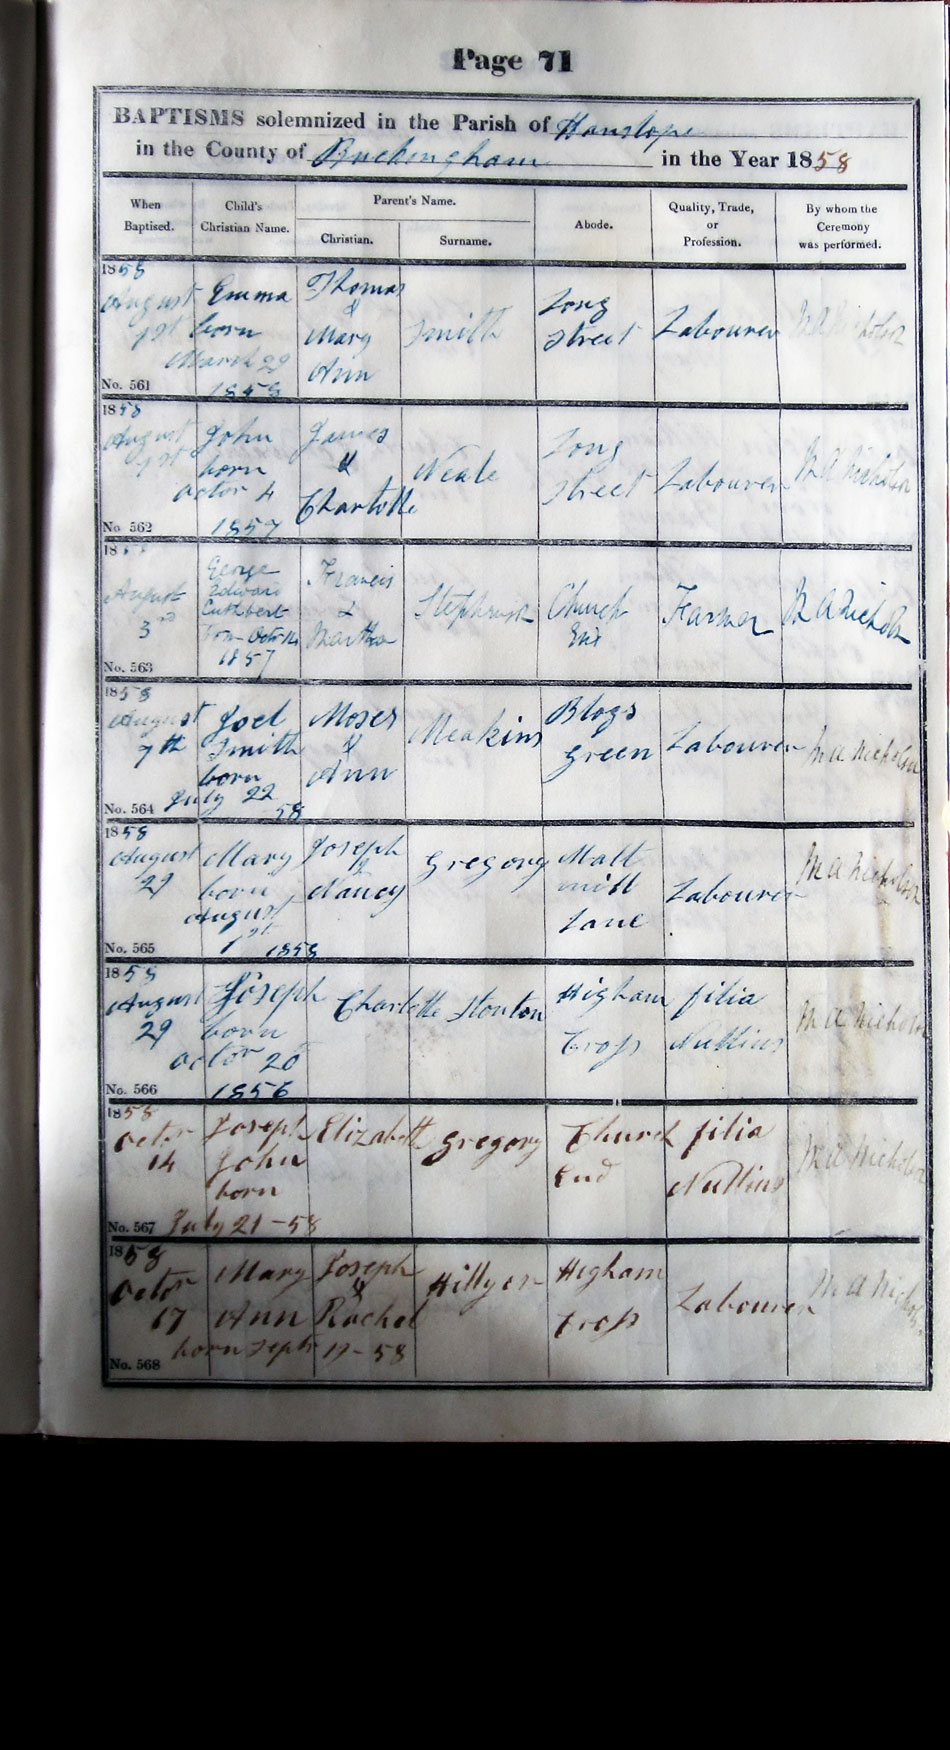 Page 71
BAPTISMS solemnized in the Parish of Hanslope
in the County of Buckingham in the Year 1858
When Baptised.
Child's Christian Name.
Parent's Name.
Christian.
Surname.
Abode.
Quality, Trade, or Profession.
By whom the Ceremony was performed.
1858
August
1st
No. 561
Emma
born
March 29
1858
Thomas
&
Mary
Ann
Smith
Long
Street
Labourer
1858
August
1st
No. 562
John
born
Octor 4
1857
James
&
Charlotte
Neale
Long
Street
Labourer
M A Nicholson
18
August
3rd
No. 563
George
Edward
Cuthbert
born Octr 14
1857
Francis
&
Martha
Stephenson
Church
End
Farmer
M A Nicholson
1858
August
7th
No. 564
Joel
Smith
born
July 22
58
Moses
&
Ann
Meakins
Blogs
Green
Labourer
M A Nicholson
1858
August
29
No. 565
Mary
born
August
1st 1858
Joseph
&
Nancy
Gregory
Malt
mill
Lane
Labourer
M A Nicholson
1858
August
29
No. 566
Joseph
born
Octor 20
1856
Charlotte
Stonton
Higham
Cross
filia
Nullius
M A Nicholson
1858
Octor
14
No. 567
Joseph
John
born
July 21 - 58
Elizabeth
Gregory
Church
End
filia
Nullius
M A Nicholson
1858
Octor
17
No. 568
Mary
Ann
born Sept 19 - 58
Joseph
&
Rachel
Hillyer
Higham
Cross
Labourer
M A Nichols